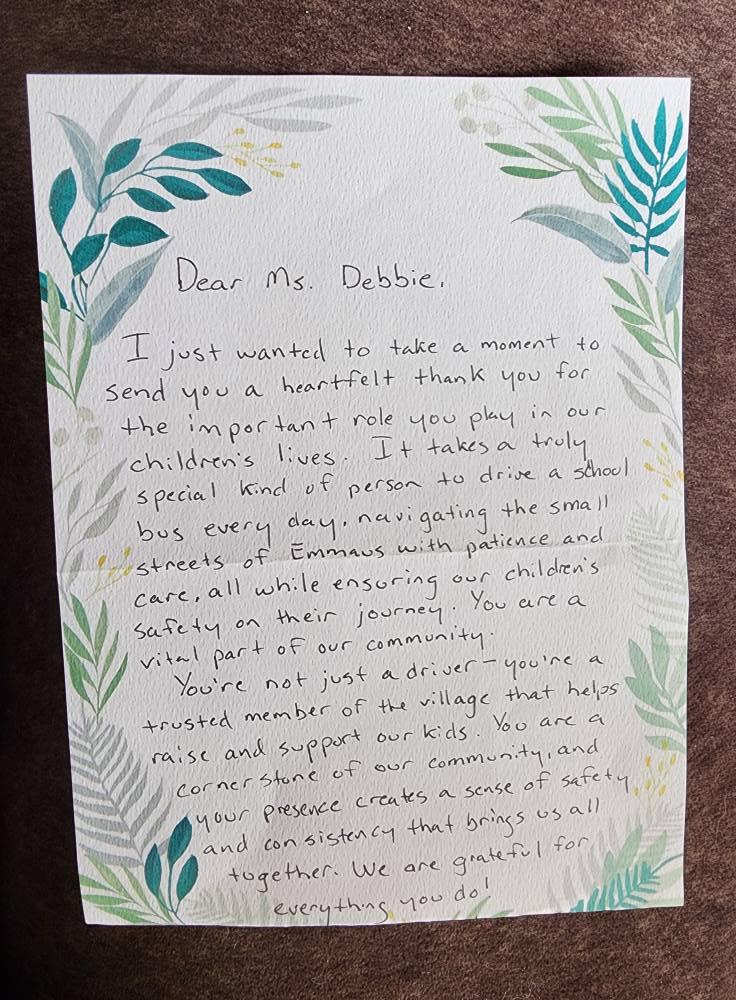 Dear Ms. Debbie,
I just wanted to take a moment to
send you a heartfelt thank you for
the important role you play in our
children's lives. It takes a truly
special kind of person to drive a school
bus every day, navigating the small
streets of Emmaus with patience and
care, all while ensuring our children's
safety on their journey. You are a
vital part of our community.
You're not just a driver – you're a
trusted member of the village that helps
raise and support our kids. You are a
cornerstone of our community, and
your presence creates a sense of safety
and consistency that brings us all
together. We are grateful for
everything you do!